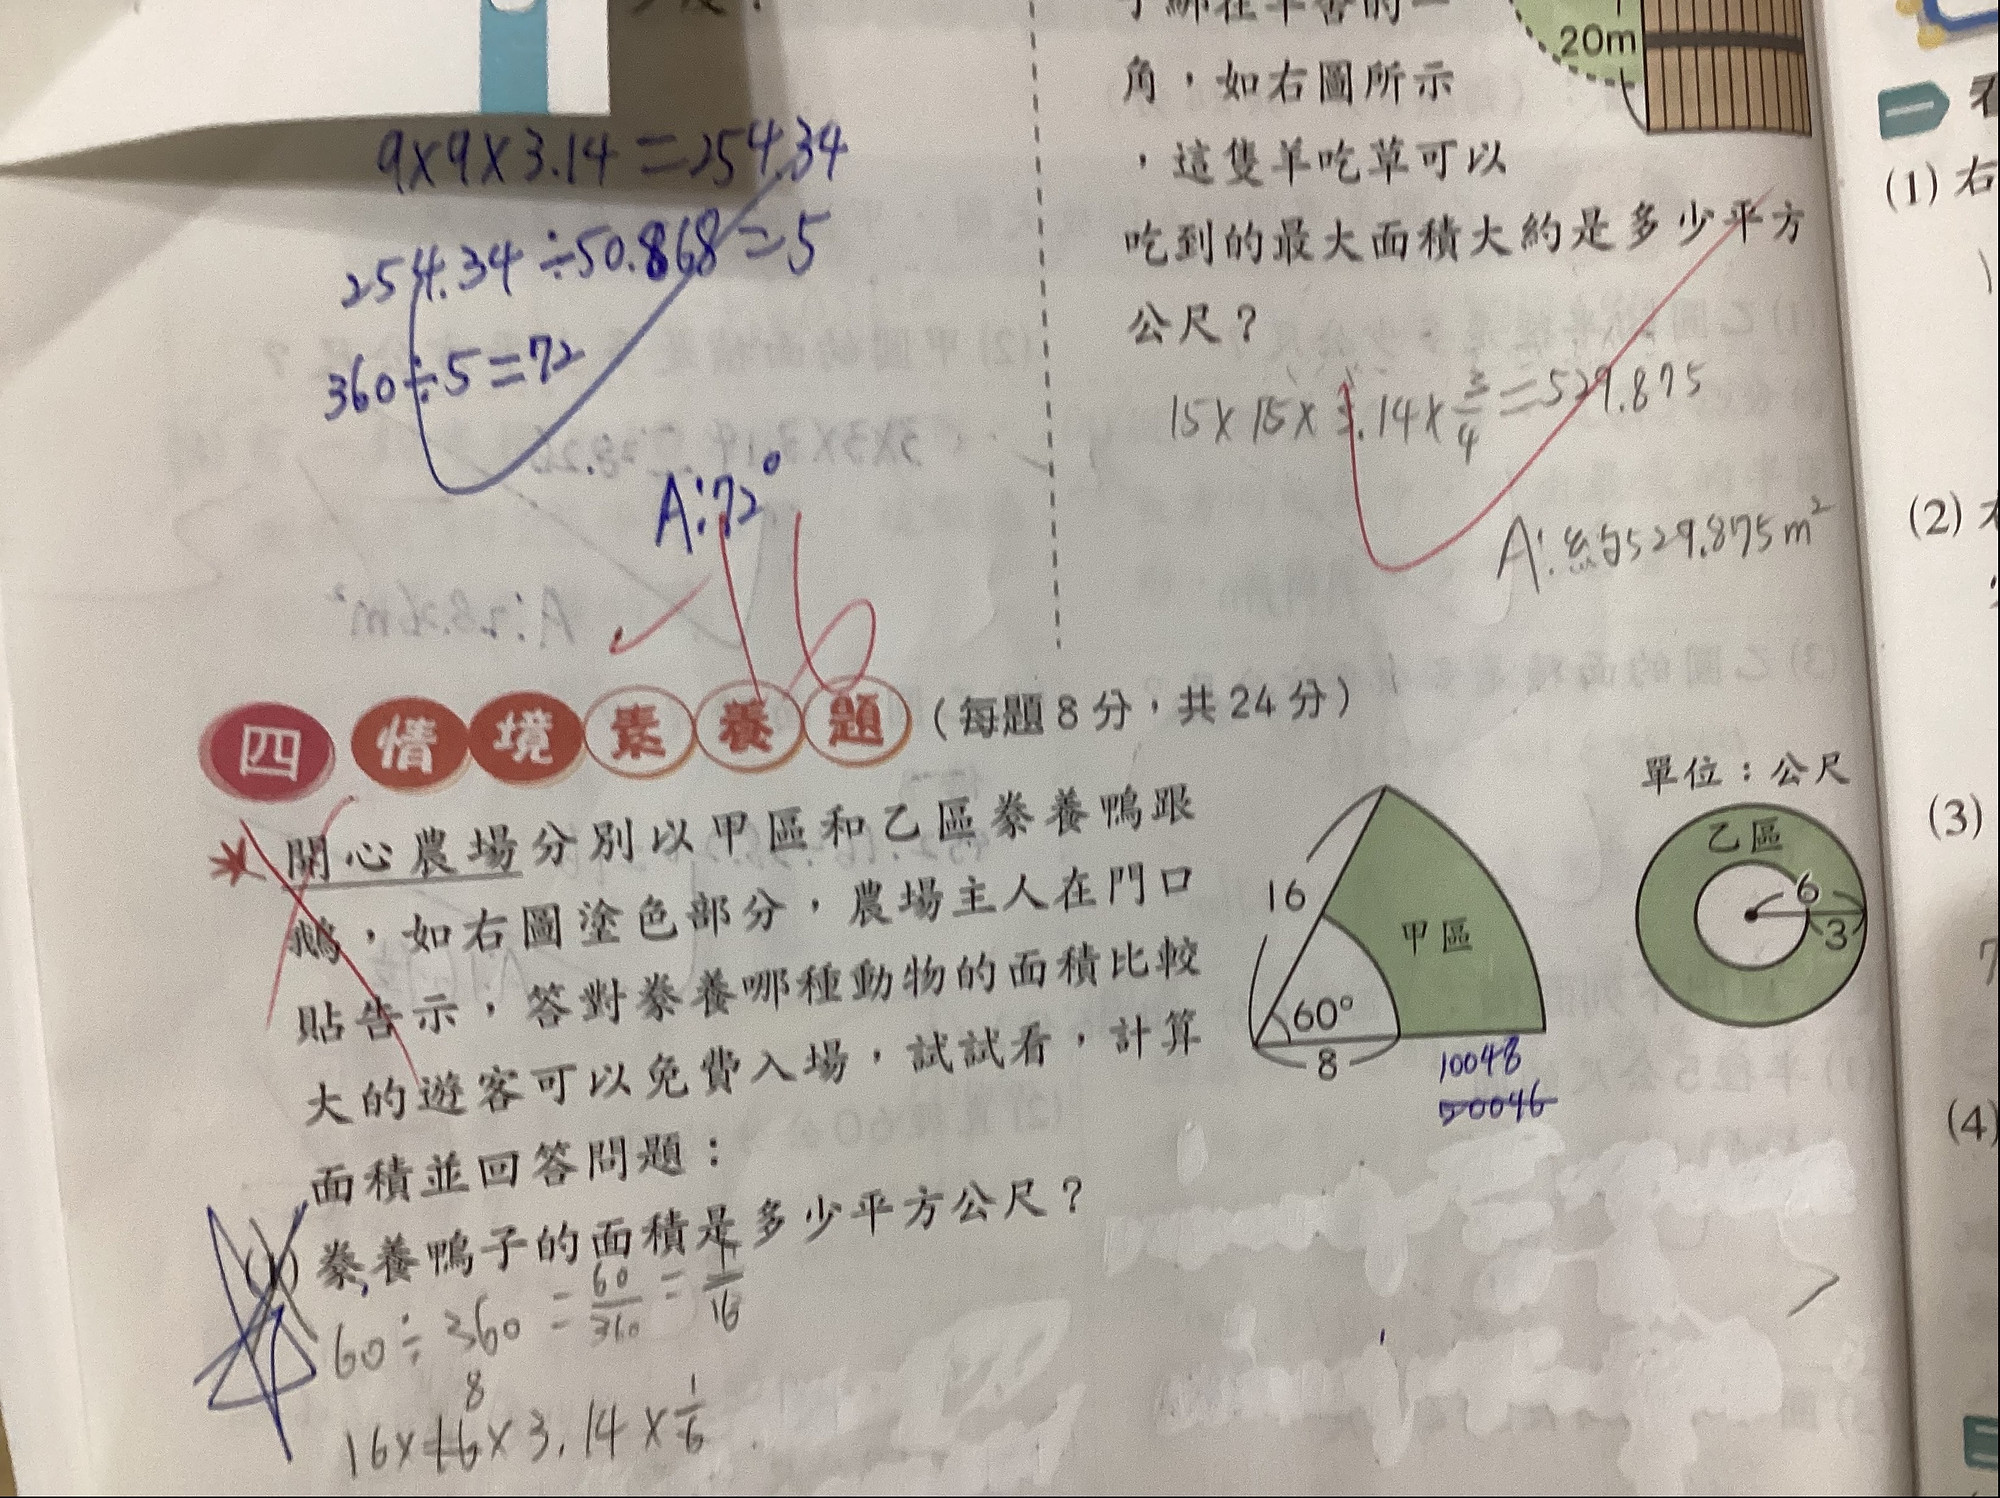 9×9×3.14=254.34
254.34÷50.868=5
360÷5=72
A:72°
20m
角，如右圖所示
，這隻羊吃草可以
吃到的最大面積大約是多少平方
公尺？
15×15×3.14×3/4=529.875
A:約529.875m²
16
四 情境素養題（每題8分，共24分）
開心農場分別以甲區和乙區豢養鴨跟
鵝，如右圖塗色部分，農場主人在門口
貼告示，答對豢養哪種動物的面積比較
大的遊客可以免費入場，試試看，計算
面積並回答問題：
單位：公尺
16
甲區
60°
8
乙區
6
3
10048
50046
(1) 豢養鴨子的面積是多少平方公尺？
60÷360=60/360=1/16
8
16×16×3.14×1/6
(1) 右
(2)
(3)
(4)